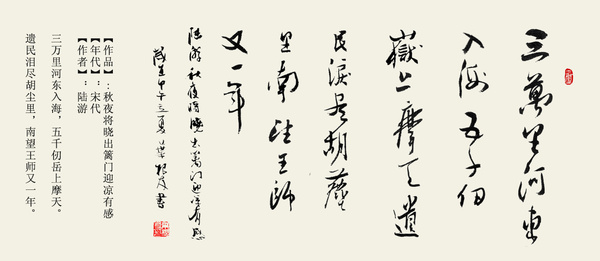 三萬里河東
入海五千仞
嶽上摩天遺
民淚盡胡塵
里南望王師
又一年
陸游秋夜將曉出籬門迎涼有感
甲午之夏 書
【作品】:秋夜将晓出篱门迎凉有感
【年代】:宋代
【作者】:陆游
三万里河东入海,五千仞岳上摩天。
遗民泪尽胡尘里,南望王师又一年。